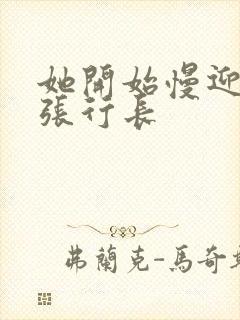 她開始慢迎
張行長
弗蘭克-馬奇